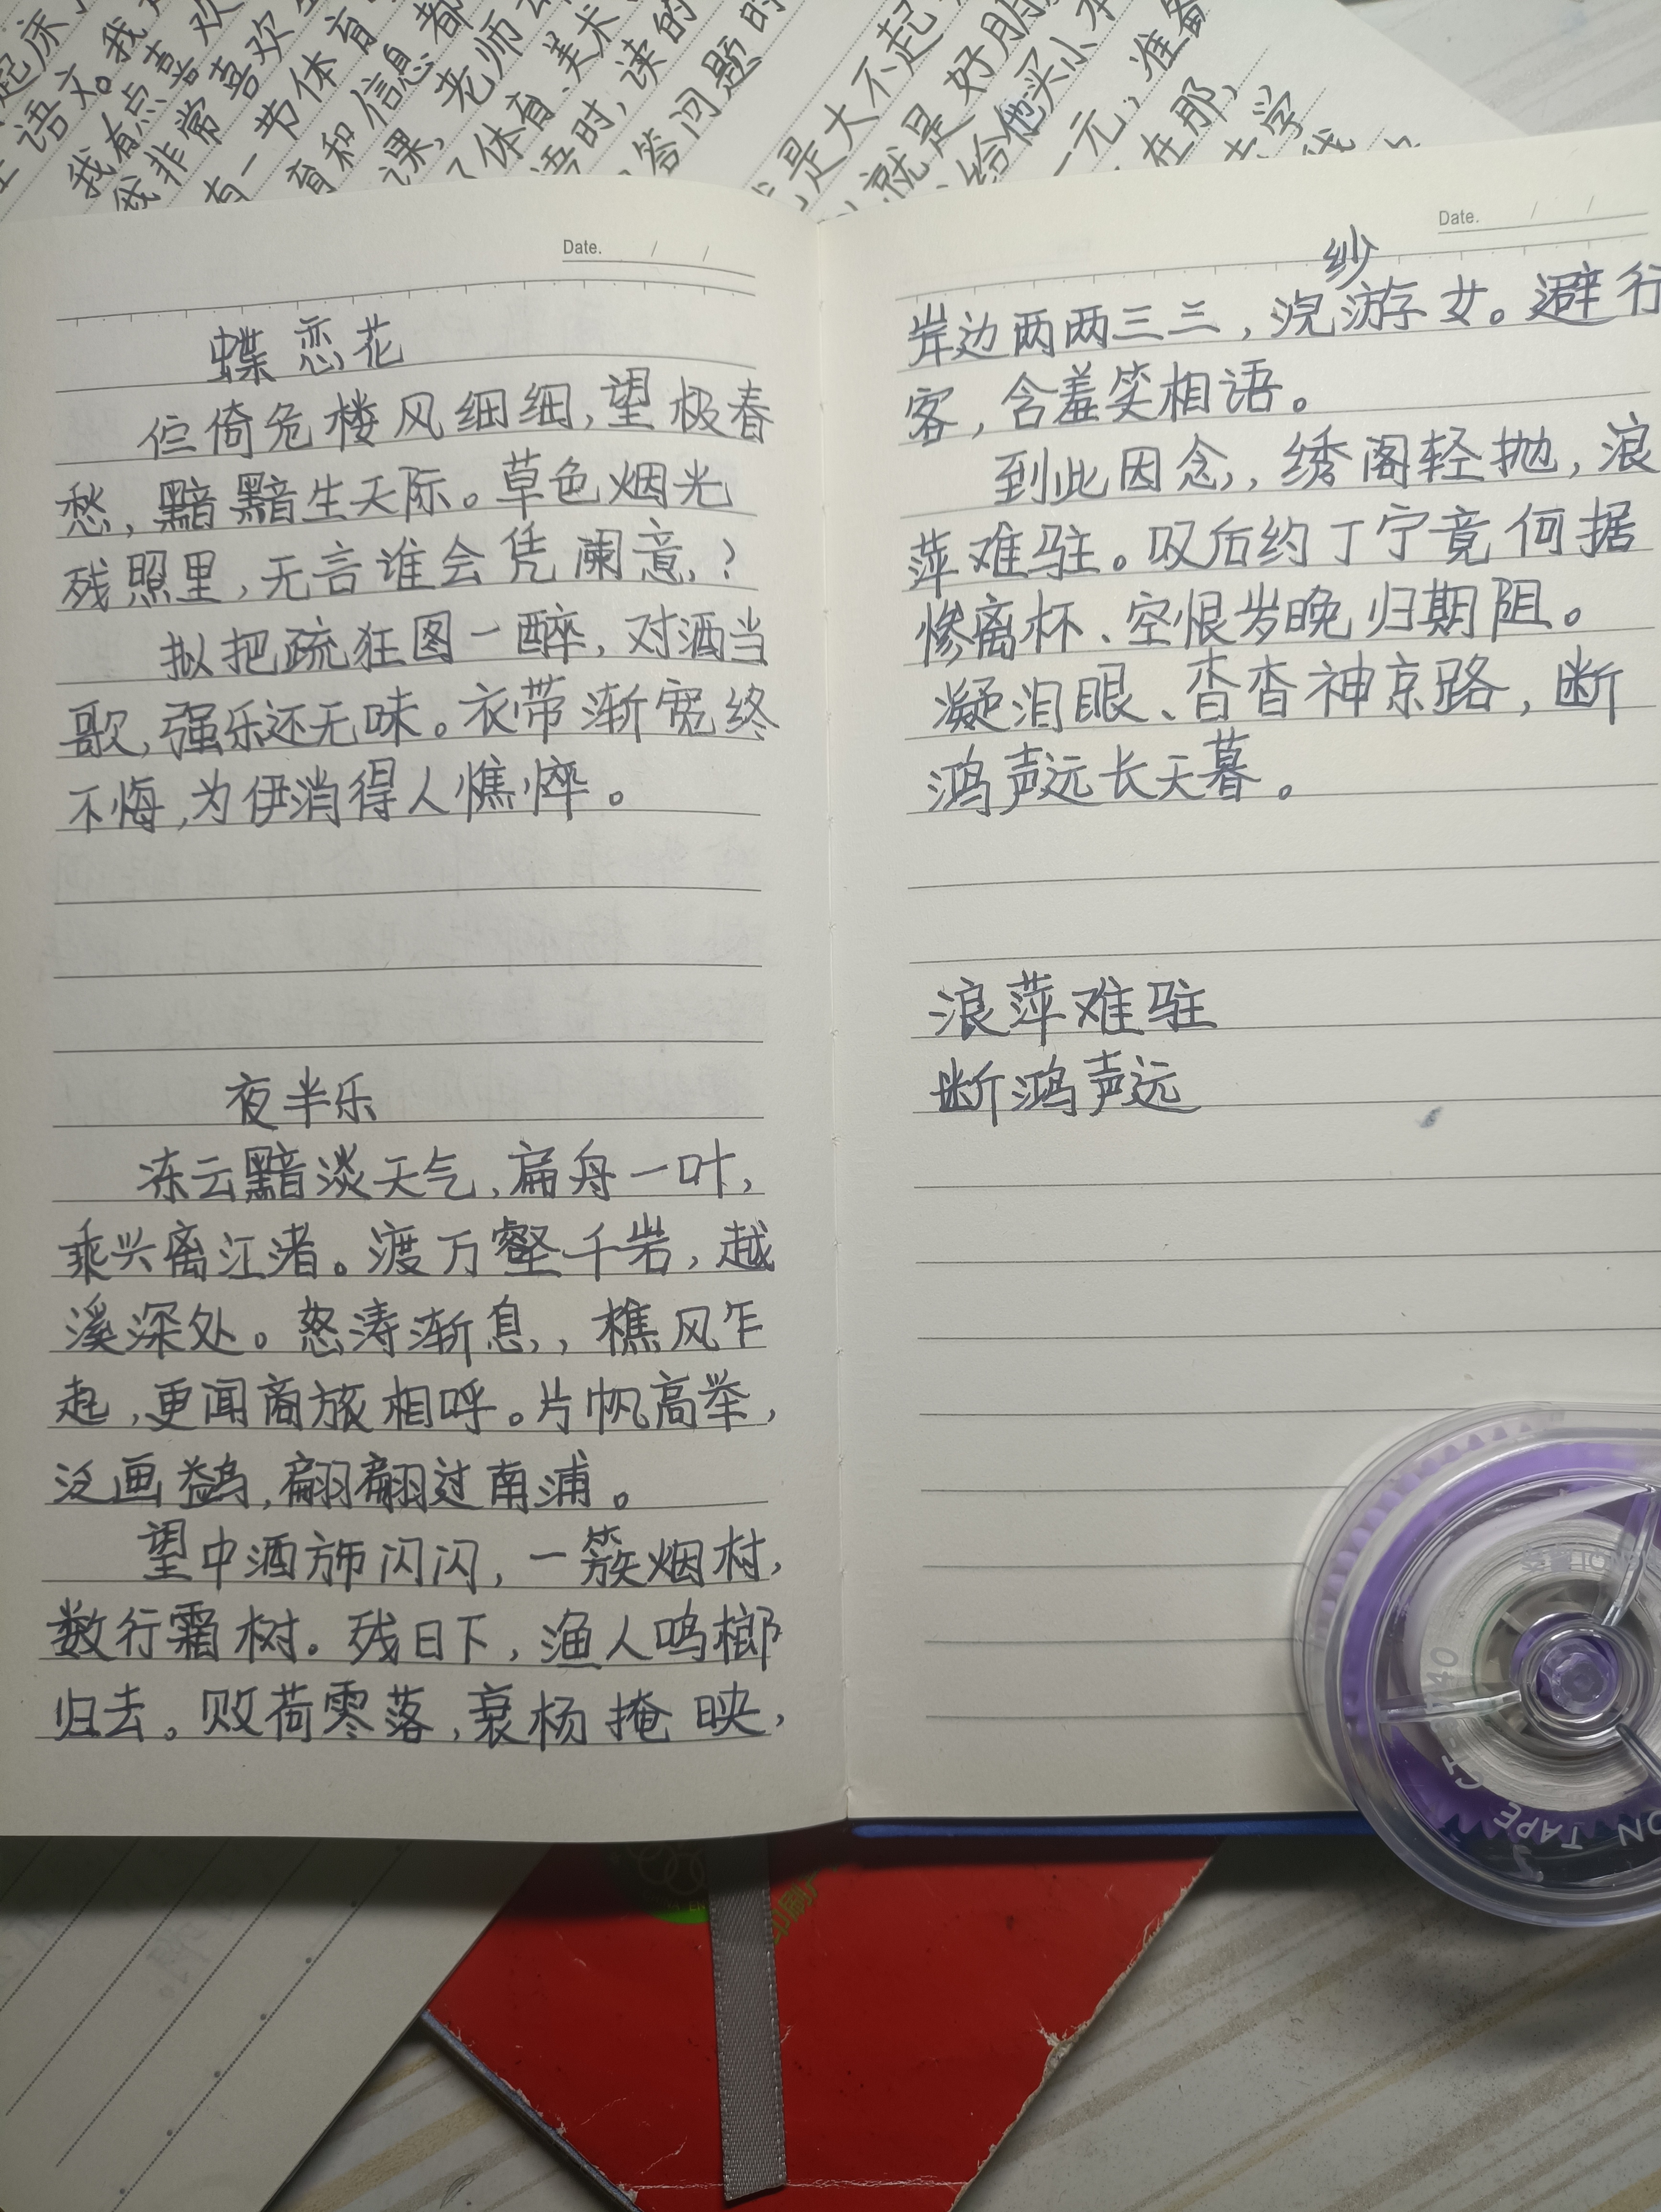 起床
语文。我
我有点喜欢
我非常喜欢
有一节体育
育和信息都
课,老师
体育、美术
语时,读的
答问题时
是大不起
就是好朋
给他买小本
一元,准备
在那,
去学
Date. / /
蝶恋花
伫倚危楼风细细,望极春
愁,黯黯生天际。草色烟光
残照里,无言谁会凭阑意,?
拟把疏狂图一醉,对酒当
歌,强乐还无味。衣带渐宽终
不悔,为伊消得人憔悴。
夜半乐
冻云黯淡天气,扁舟一叶,
乘兴离江渚。渡万壑千岩,越
溪深处。怒涛渐息,,樵风乍
起,更闻商旅相呼。片帆高举,
泛画鹢,翩翩过南浦。
望中酒旆闪闪,一簇烟村,
数行霜树。残日下,渔人鸣榔
归去。败荷零落,衰杨掩映,
Date. / /
纱
岸边两两三三,浣游女。避行
客,含羞笑相语。
到此因念,,绣阁轻抛,浪
萍难驻。叹后约丁宁竟何据
惨离杯、空恨岁晚归期阻。
凝泪眼、杳杳神京路,断
鸿声远长天暮。
浪萍难驻
断鸿声远
TAPE